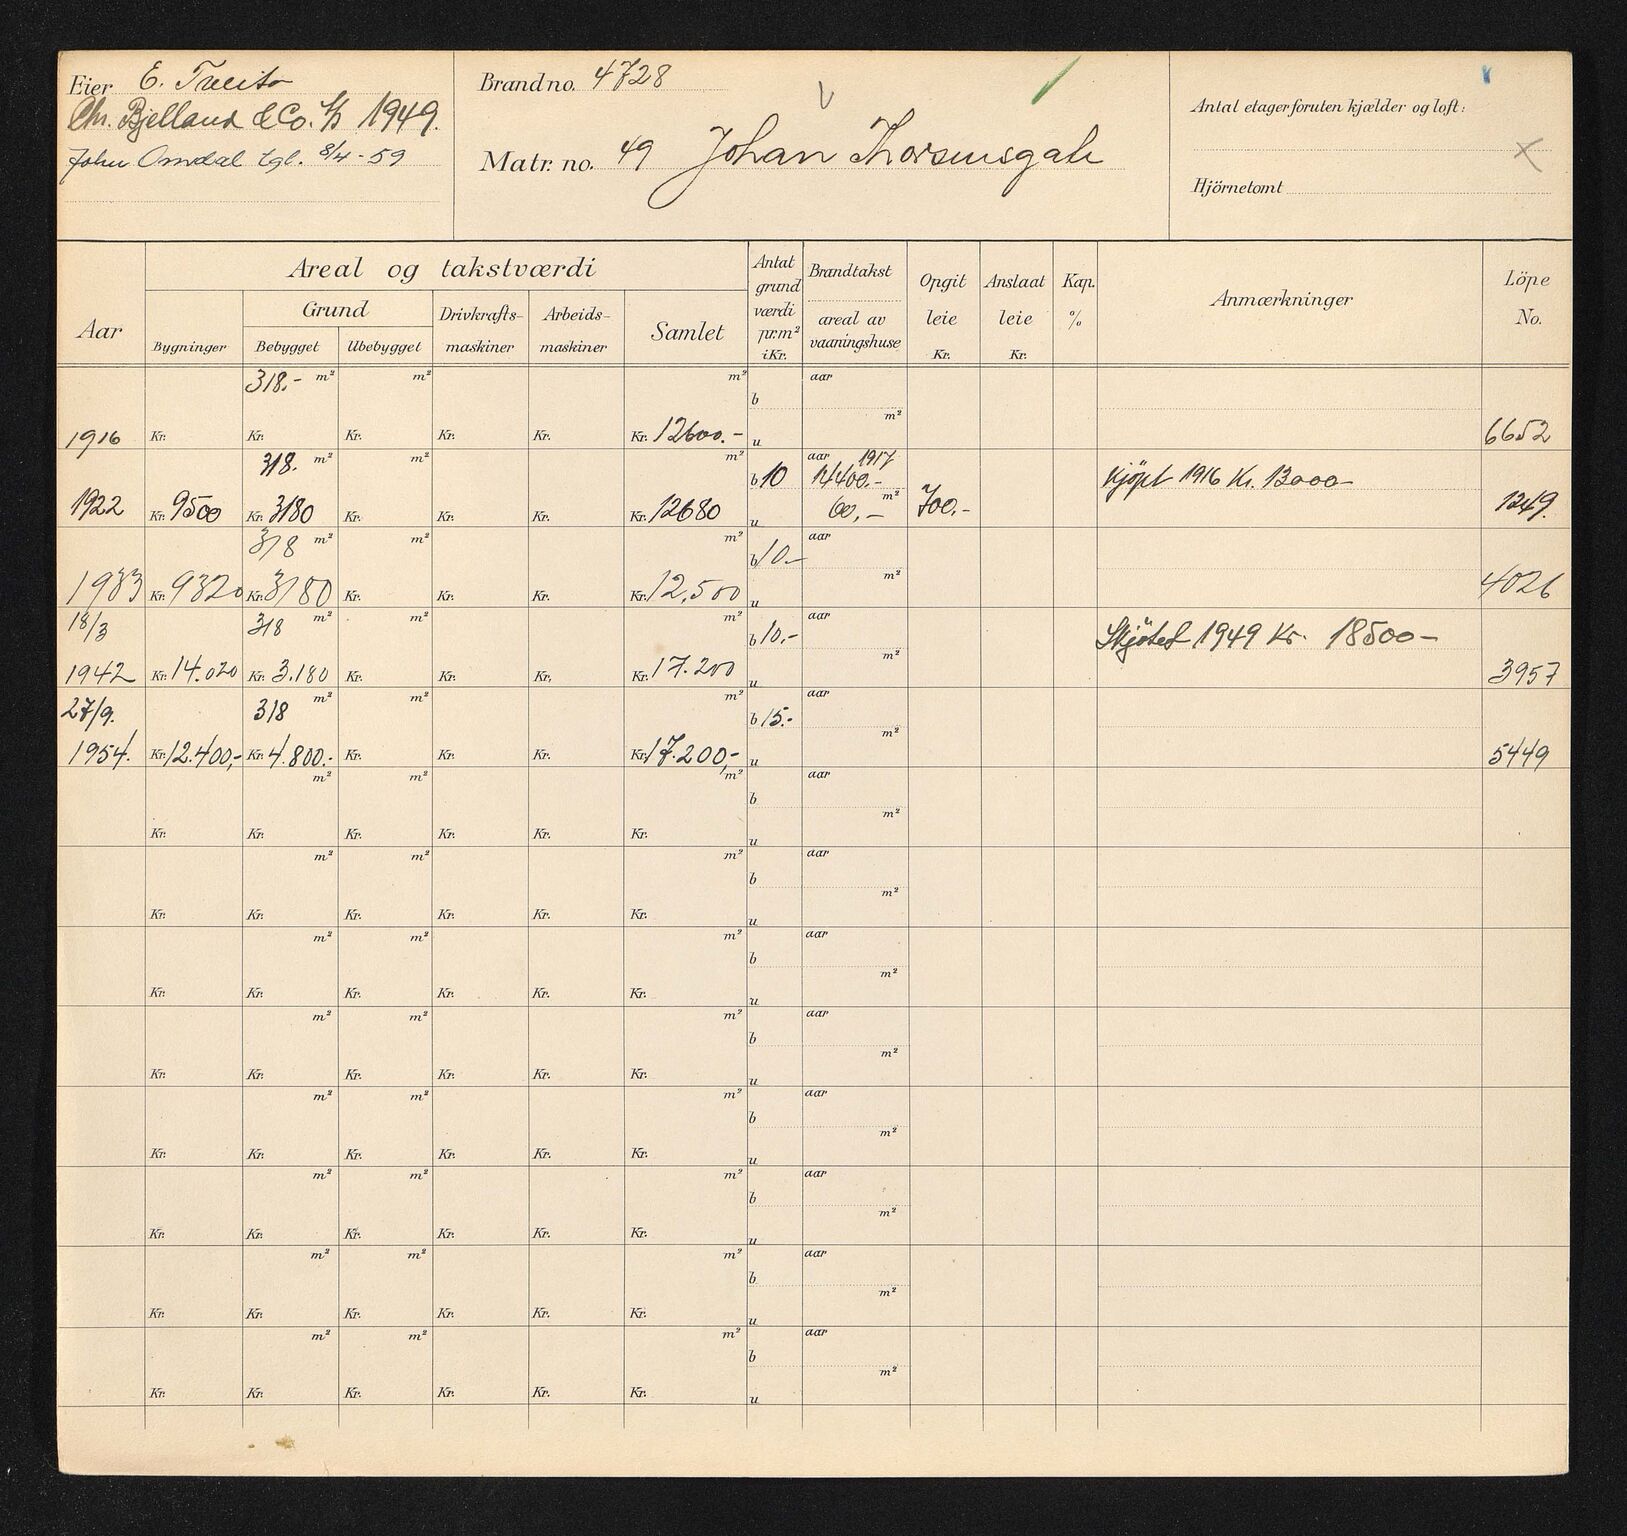 Eier E. Tveito
Chr. Bjelland & Co. A/S 1949.
John Omdal tgl. 8/4-59
Brand no. 4728
Matr. no. 49 Johan Thorsensgate
Antal etager foruten kjælder og loft:
Hjörnetomt
Aar
Areal og takstværdi
Grund
Bygninger Bebygget Ubebygget
Drivkrafts-
maskiner
Arbeids-
maskiner
Samlet
Antat
grund
værdi
pr.m²
i Kr.
Brandtakst
areal av
vaaningshuse
Opgit
leie
Kr.
Anslaat
leie
Kr.
Kap.
%
Anmærkninger
Löpe
No.
318.- m² m² m² aar
b
m²
1916 Kr. Kr. Kr. Kr. Kr. Kr. 12600.- u 6652
318. m² m² m² aar 1917
b 10 14400.- kjöpt 1916 Kr. 13000-
m²
1922 Kr. 9500 Kr. 3180 Kr. Kr. Kr. Kr. 12680 u 60,- 700.- 1249.
318 m² m² m² aar
b 10.-
m²
1933 Kr. 9320 Kr. 3180 Kr. Kr. Kr. Kr. 12,500 u 4026
18/3 318 m² m² m² aar
b 10,- Skjötet 1949 Kr. 18500-
m²
1942 Kr. 14.020 Kr. 3.180 Kr. Kr. Kr. Kr. 17.200 u 3957
27/9. 318 m² m² m² aar
b 15.-
m²
1954. Kr. 12.400,- Kr. 4.800.- Kr. Kr. Kr. Kr. 17.200,- u 5449
m² m² m² aar
b
m²
Kr. Kr. Kr. Kr. Kr. Kr. u
m² m² m² aar
b
m²
Kr. Kr. Kr. Kr. Kr. Kr. u
m² m² m² aar
b
m²
Kr. Kr. Kr. Kr. Kr. Kr. u
m² m² m² aar
b
m²
Kr. Kr. Kr. Kr. Kr. Kr. u
m² m² m² aar
b
m²
Kr. Kr. Kr. Kr. Kr. Kr. u
m² m² m² aar
b
m²
Kr. Kr. Kr. Kr. Kr. Kr. u
m² m² m² aar
b
m²
Kr. Kr. Kr. Kr. Kr. Kr. u
m² m² m² aar
b
m²
Kr. Kr. Kr. Kr. Kr. Kr. u